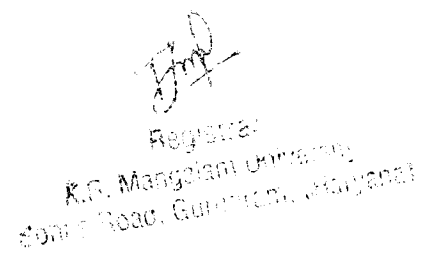 Registrar
K.R. Mangalam University
Sohna Road, Gurugram, (Haryana)